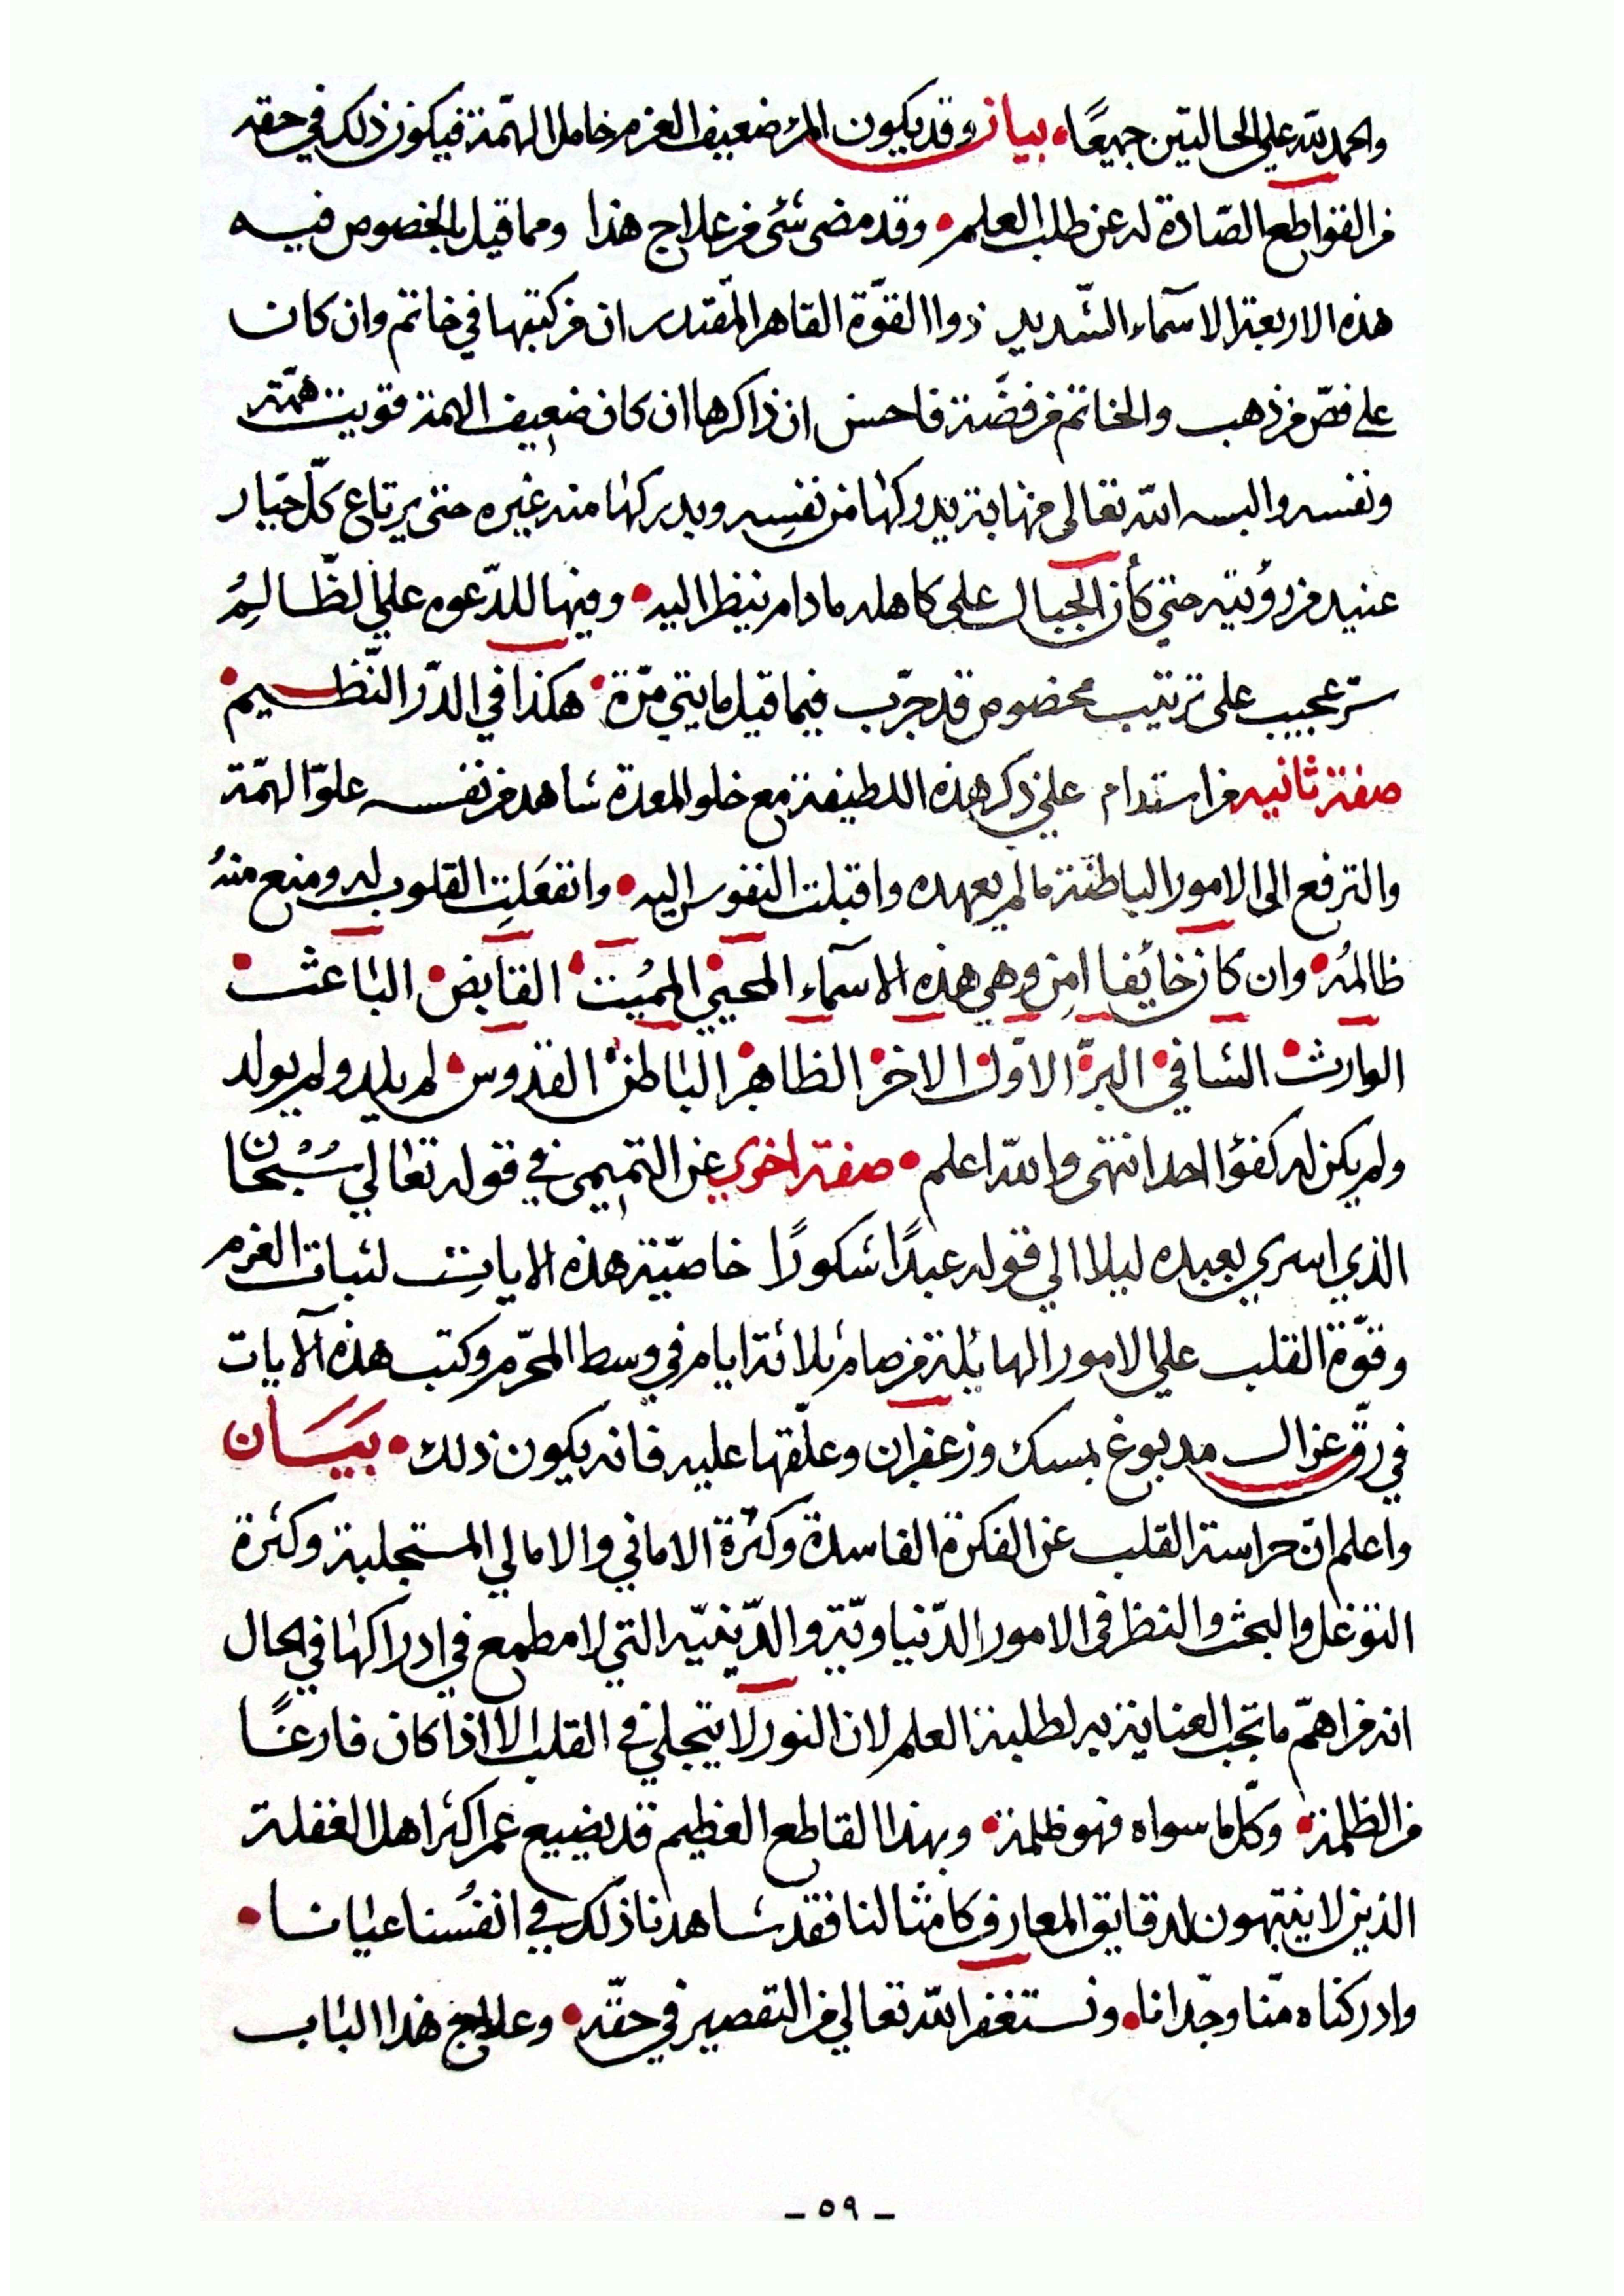 والحمد لله علي الحالتين جميعًا • بيان وقد يكون المرء ضعيف العزم خامل الهمّة فيكون ذلك في حقه
من القواطع الصّادة له عن طلب العلم • وقد مضى شئ من علاج هذا ومما قيل بالخصوص فيه
هذه الاربعة الاسمآء الشّديد ذوا القوّة القاهر المقتدر ان من كتبها في خاتم وان كان
على فصّ من ذهب والخاتم من فضّة فاحسن ان ذاكرها ان كان ضعيف الهمة قويت همّته
ونفسه والبسه الله تعالى مهابة يدركها من نفسِه ويدركها منه غيره حتى يرتاع كلّ جبار
عنيد من رؤيته حتي كأن الجبال على كاهله مادام ينظر اليه • وفيها للدّعوه علي الظّالِمُ
سرّ عجيب على ترتيب مخصوص قد جرّب فيما قيل مايتي مرّة • هكذا في الدّر النّظيم •
صفة ثانيه من استدام علي ذكر هذه اللطيفة مع خلو المعدة شاهد من نفسه علوّ الهمّة
والترفع الى الامور الباطنة مالم يعهده واقبلت النفوس اليه • وانفعَلتِ القلوب له ومنع منهُ
ظالمُه • وان كان خائفا امِن وهي هذه الاسمآء المحيي • المُميت • القابض • الباعث •
الوارث • الشافي • البرّ • الاوّل • الاخر • الظاهر • الباطن • القدوس • لم يلد ولم يولد
ولم يكن له كفؤا احد انتهى والله اعلم • صفة اخري عن التميمى في قوله تعالي سُبْحان
الذي اسري بعبده ليلا الي قوله عبدًا شكورًا خاصّية هذه الاياتِ لثبات العزم
وقوّة القلب علي الامور الهائلة من صام ثلاثة ايام في وسط المحرّم وكتب هذه الآيات
في رقّ غزال مدبوغ بمسك وزعفران وعلّقها عليه فانه يكون ذلك • بَيَان
واعلم انّ حراسة القلب عن الفكرة الفاسدة وكثرة الاماني والامالي المستجلبة وكثرة
التوغل والبحث والنظر فى الامور الدّنياويّة والدّينيّه التي لا مطمع في ادراكها في الحال
انه من اهمّ ما تجب العناية به لطلبة العلم لان النور لا يتجلي في القلب الا اذا كان فارغًا
من الظلمة • وكلّ ما سواه فهو ظلمة • وبهذا القاطع العظيم قد يضيع عمر اكثر اهل الغفلة
الذين لا ينتبهون لدقايق المعارف كامثالنا فقد شاهدنا ذلك في انفسُنا عيانا •
وادركناه منّا وجدانا • ونستغفر الله تعالي من التقصير في حقّه • وعلاج هذا الباب
- ٥٩ -